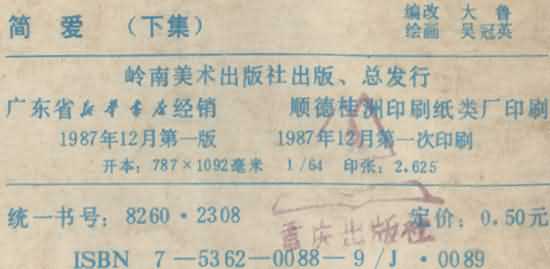 简 爱 （下集） 编改 大 鲁
绘画 吴冠英
岭南美术出版社出版、总发行
广东省新华书店经销 顺德桂洲印刷纸类厂印刷
1987年12月第一版 1987年12月第一次印刷
开本：787×1092毫米 1/64 印张：2.625
统一书号：8260·2308 定价：0.50元
重庆出版社
ISBN 7—5362—0088—9/J·0089